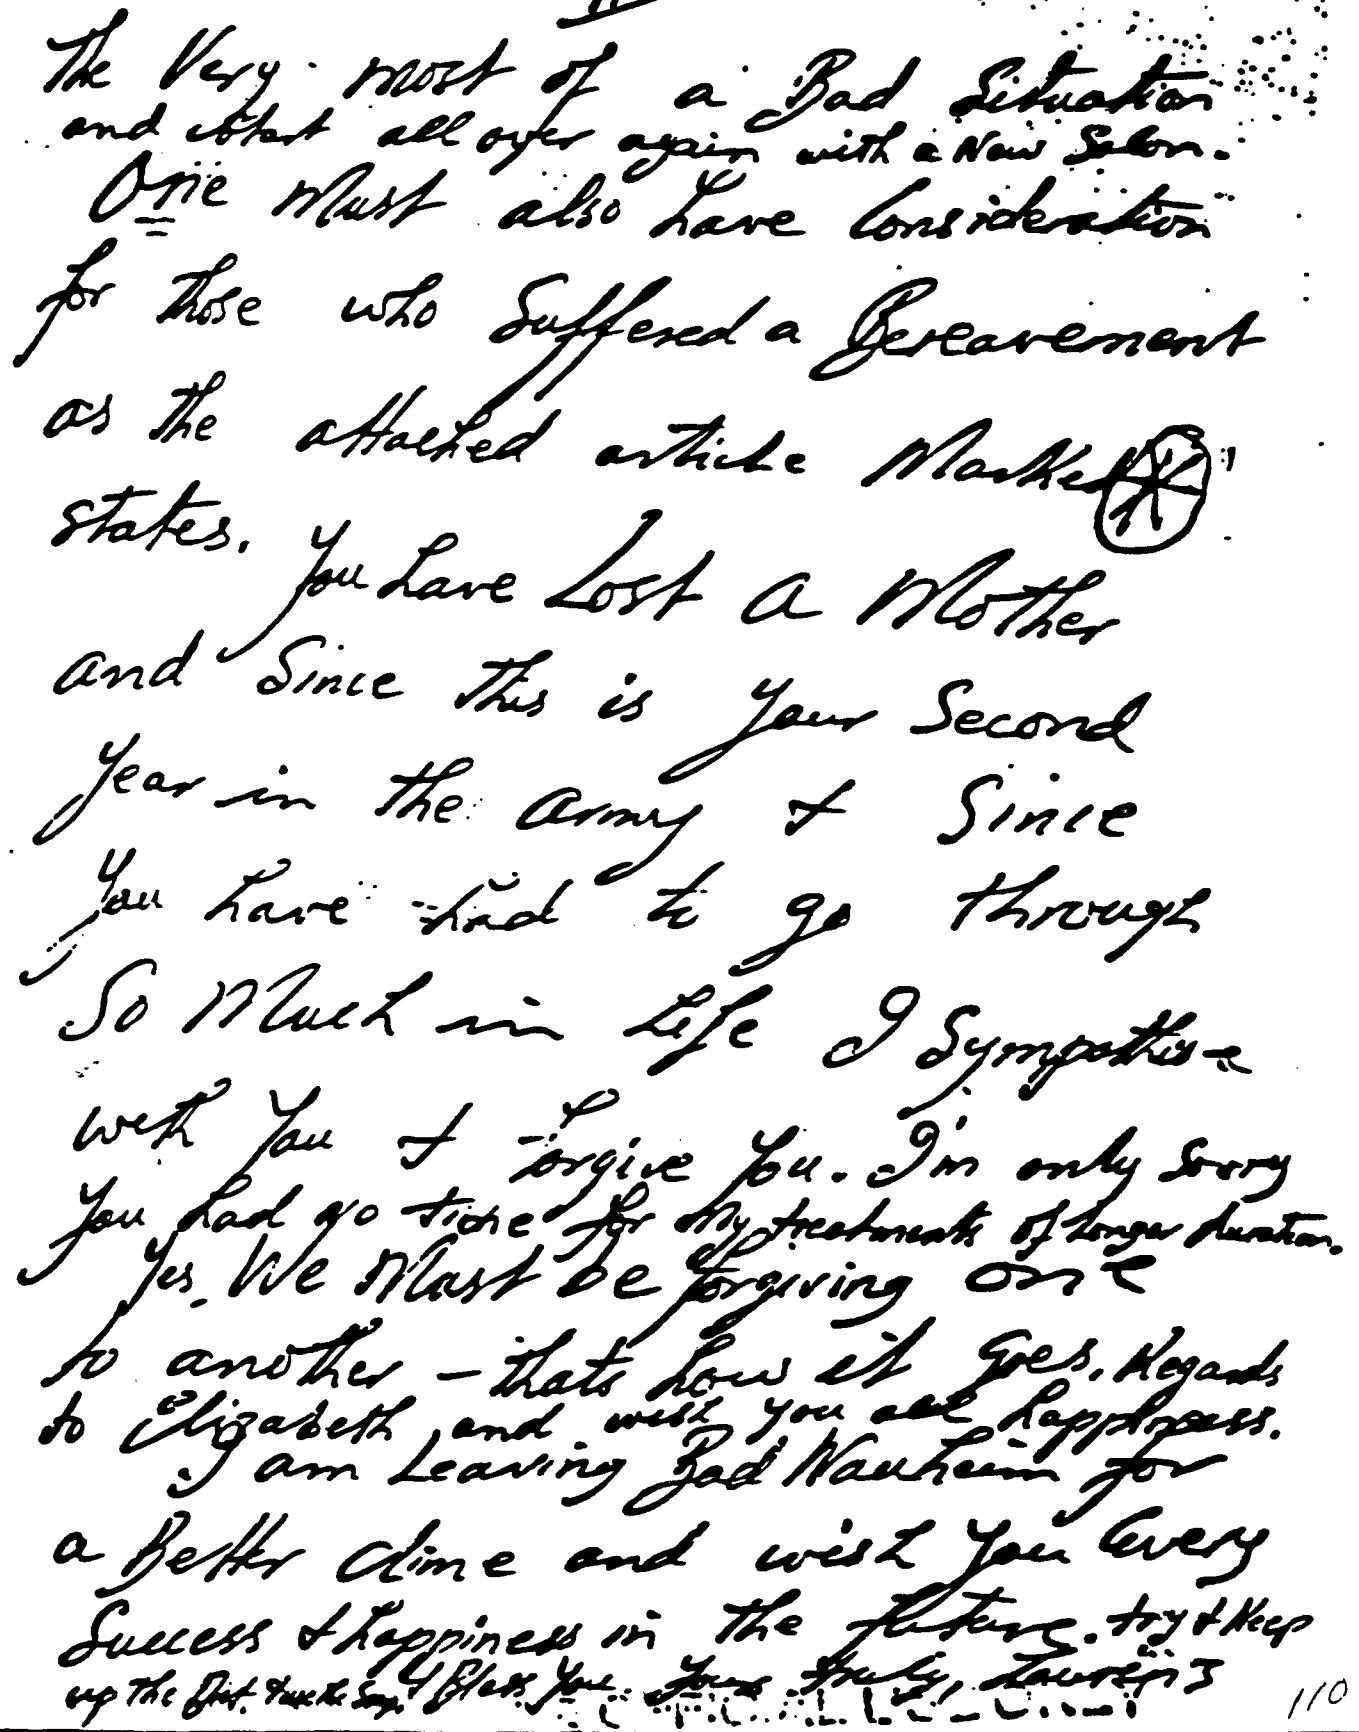 II
The Very most of a Bad Situation
and start all over again with a New Salon.
One Must also have Consideration
for those who Suffered a Bereavement
as the attached article Marked
states.
You have Lost a Mother
and Since this is your Second
year in the army & Since
you have had to go through
So Much in Life I Sympathise
with You & Forgive You. I'm only Sorry
you had no time for My treatments of Longer duration.
Yes, We Must be forgiving one
to another - thats how it goes. Regards
to Elizabeth and wish you all happiness.
I am Leaving Bad Nauheim for
a Better Clime and wish You Every
Success & happiness in the future. try & Keep
up the Diet. Bless You Yours truly, Laurens
110